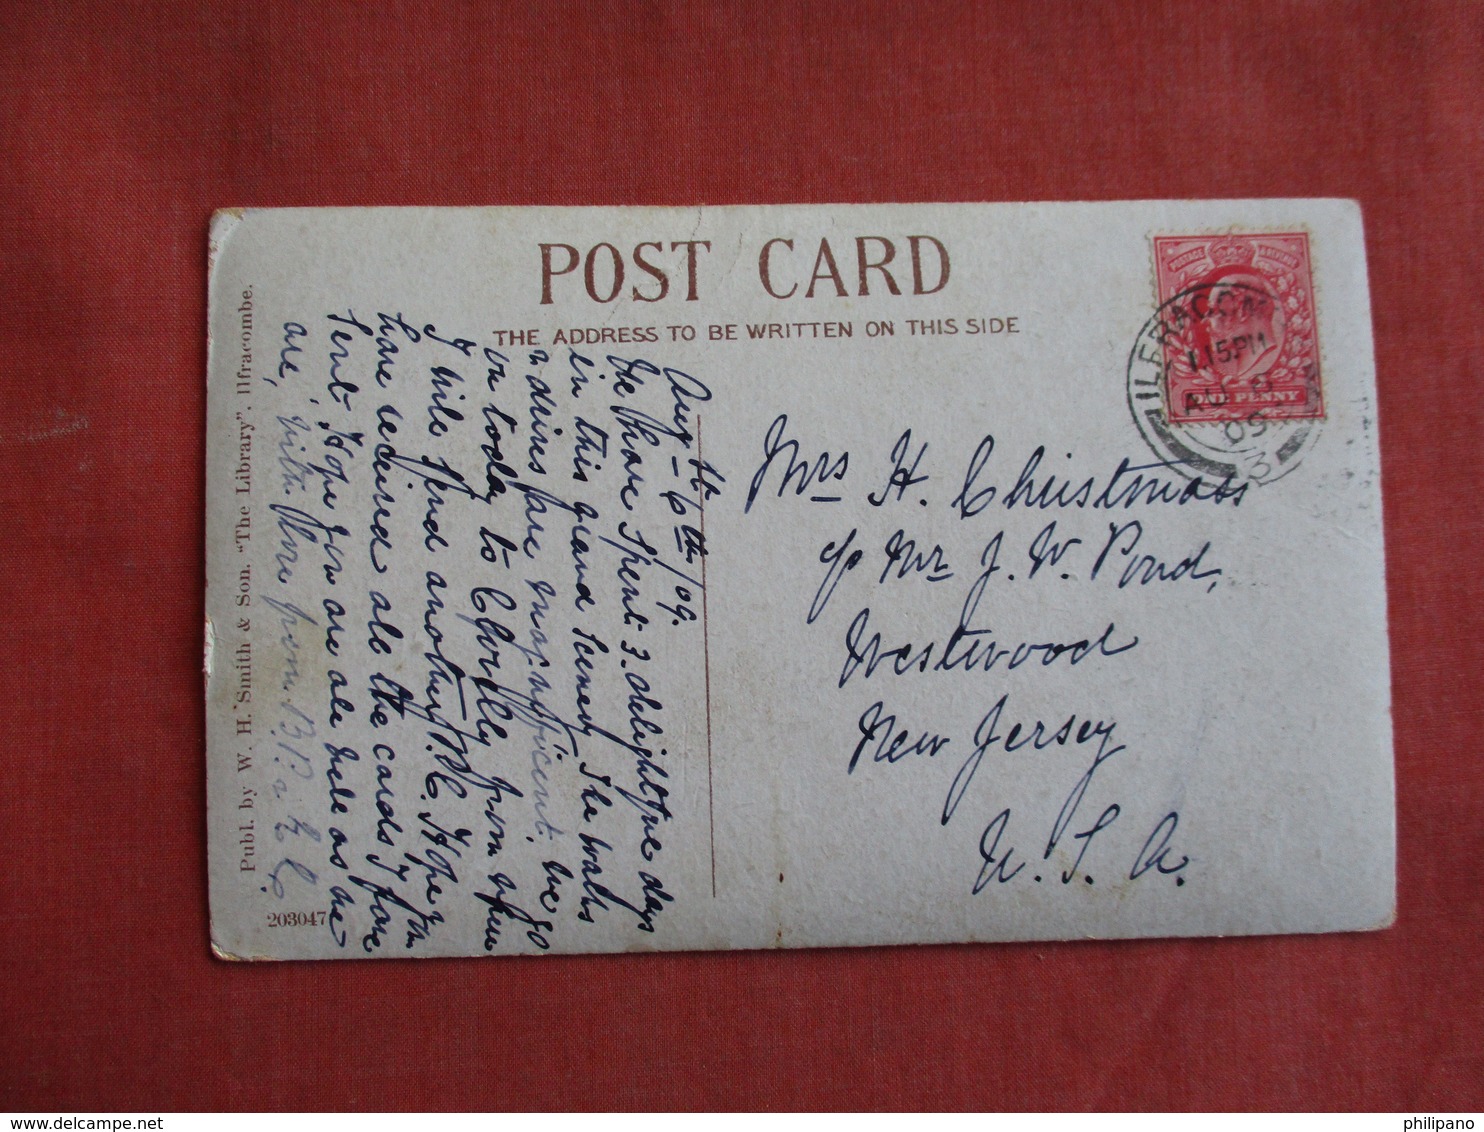 POST CARD
THE ADDRESS TO BE WRITTEN ON THIS SIDE
ILFRACOM
1 15PM
AU 6
09
3
POSTAGE REVENUE
ONE PENNY
Aug- 6th/09.
We have spent 3. delightful days
in this grand scenery. The walks
& drives are magnificent. We go
on today to Clovelly from where
I will send another P.C. I Hope you
have received all the cards I have
sent Hope you are all well as we
are, with love from B.P. &
Mrs H. Christmass
c/o Mr J. W. Pond,
Westwood
New Jersey
U. S. A.
Publ. by W. H. Smith & Son. "The Library", Ilfracombe.
203047
www.delcampe.net
philipano